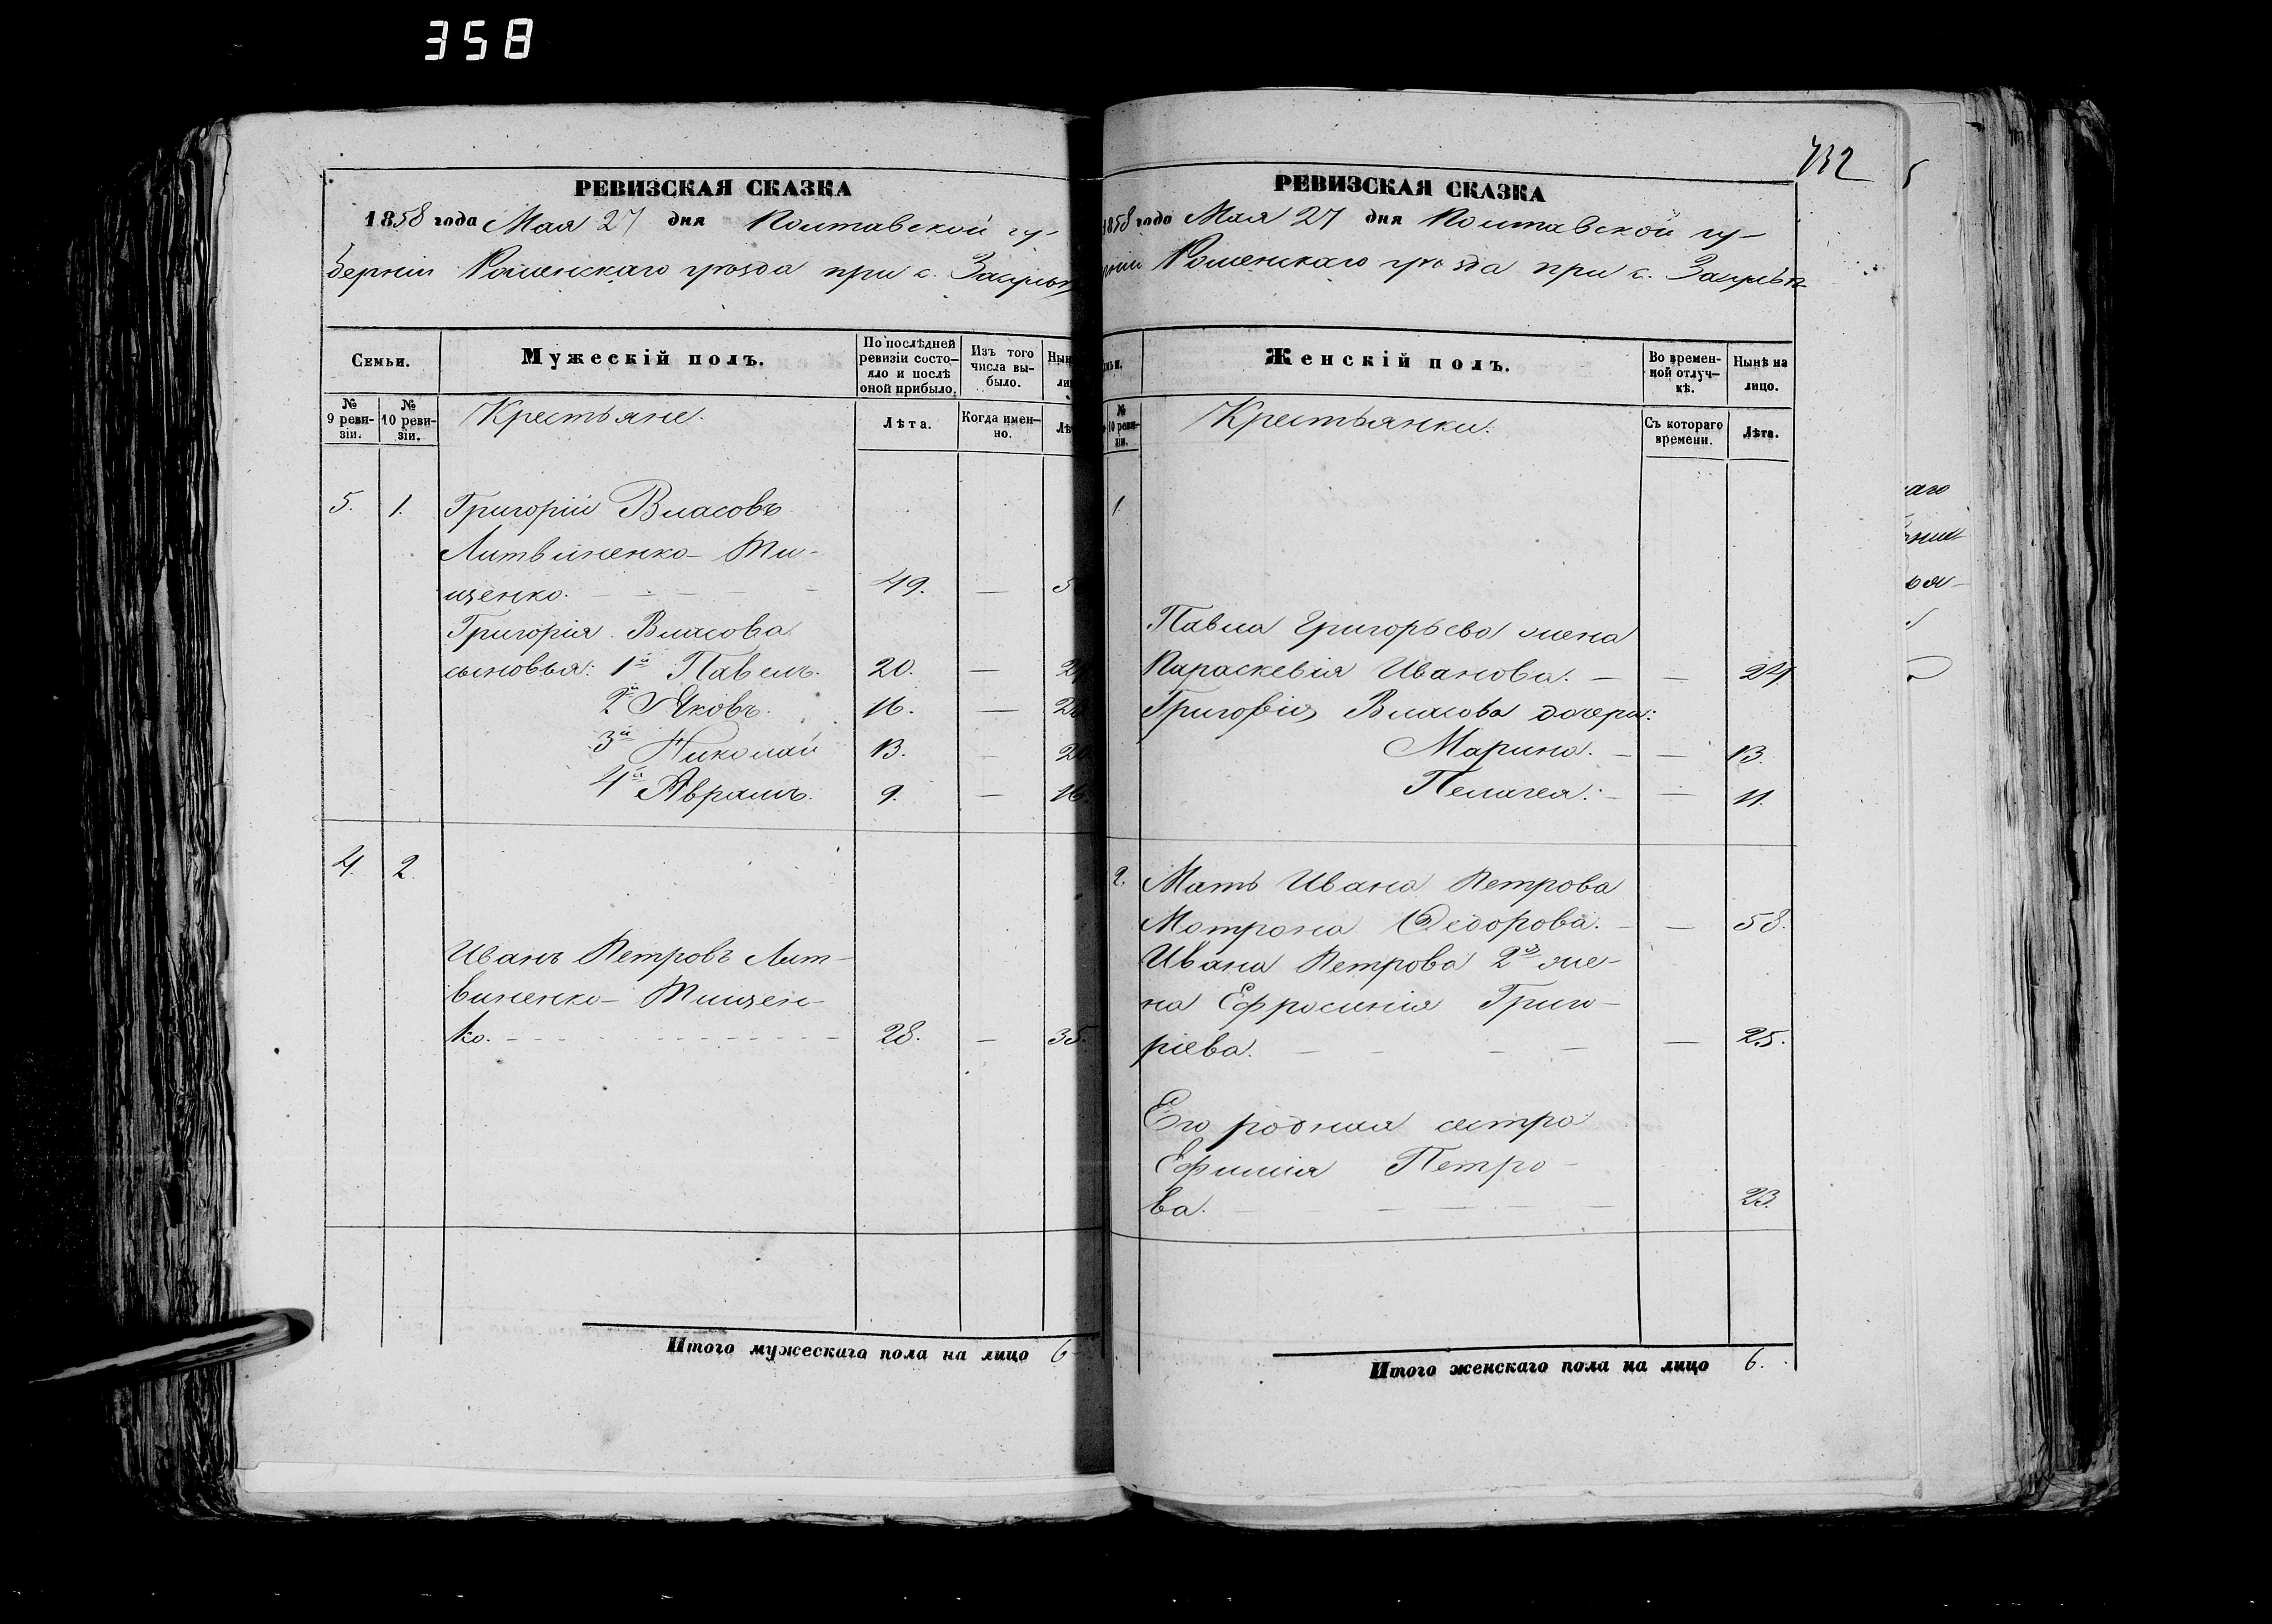 358
РЕВИЗСКАЯ СКАЗКА
1858 года Мая 27 дня Полтавской гу-
берніи Роменскаго уѣзда при с. Засульѣ
Семьи.
Мужескій полъ.
По послѣдней ревизіи состо-
яло и послѣ оной прибыло.
Изъ того числа вы-
было.
№ 9 реви-
зіи.
№ 10 реви-
зіи.
Крестьяне.
Лѣта.
Когда имен-
но.
5. 1. Григорій Власовъ
Литвиненко- Ти-
щенко. 49. —
Григорія Власова
сыновья: 1й Павелъ. 20. —
2й Яковъ. 16. —
3й Николай 13. — 20
4й Аврамъ. 9. — 16.
4. 2.
Иванъ Петровъ Лит-
виненко- Тищен-
ко. 28. — 35.
Итого мужескаго пола на лицо 6
732
РЕВИЗСКАЯ СКАЗКА
1858 года Мая 27 дня Полтавской гу-
Роменскаго уѣзда при с. Засульѣ
Женскій полъ.
Во времен-
ной отлуч-
кѣ.
Нынѣ на лицо.
№ 10 реви-
зіи.
Крестьянки.
Съ котораго времени.
Лѣта.
1.
Павла Григорьева жена
Параскевія Иванова. — — 24.
Григорія Власова дочери:
Марина. — — 13.
Пелагея. — — 11.
2. Мать Ивана Петрова
Мотрона Ѳедорова. — — 58.
Ивана Петрова 2я же-
на Ефросинія Григо-
ріева. — 25.
Его родная сестра
Ефимія Петро-
ва. 23.
Итого женскаго пола на лицо 6.